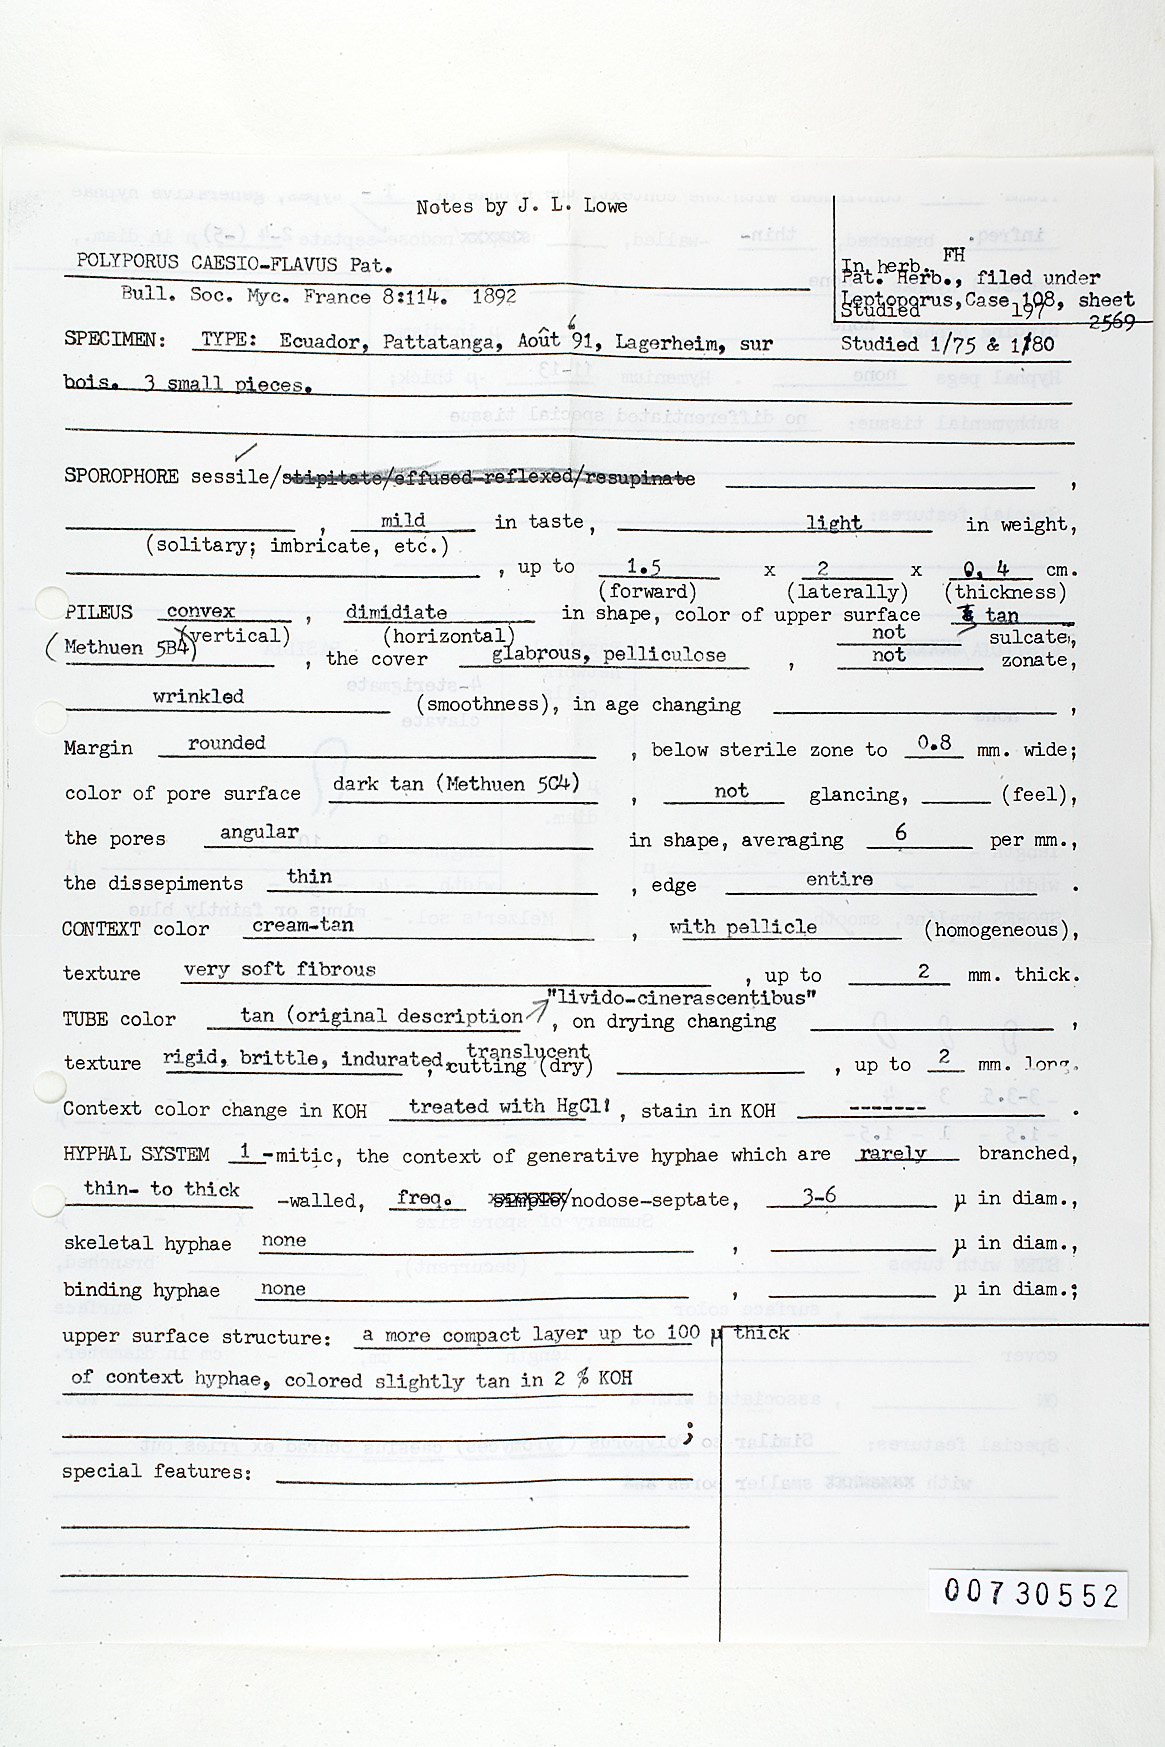 Notes by J. L. Lowe
POLYPORUS CAESIO-FLAVUS Pat.
Bull. Soc. Myc. France 8:114. 1892
In herb. FH
Pat. Herb., filed under
Leptoporus, Case 108, sheet
Studied 197
2569
SPECIMEN: TYPE: Ecuador, Pattatanga, Août '91, Lagerheim, sur
Studied 1/75 & 1/80
bois. 3 small pieces.
SPOROPHORE sessile/stipitate/effused-reflexed/resupinate ,
, mild in taste, light in weight,
(solitary; imbricate, etc.)
, up to 1.5 x 2 x 0.4 cm.
(forward) (laterally) (thickness)
PILEUS convex , dimidiate in shape, color of upper surface tan
(vertical) (horizontal) not sulcate,
(Methuen 5B4) , the cover glabrous, pelliculose , not zonate,
wrinkled (smoothness), in age changing ,
Margin rounded , below sterile zone to 0.8 mm. wide;
color of pore surface dark tan (Methuen 5C4) , not glancing, (feel),
the pores angular in shape, averaging 6 per mm.,
the dissepiments thin , edge entire .
CONTEXT color cream-tan , with pellicle (homogeneous),
texture very soft fibrous , up to 2 mm. thick.
"livido-cinerascentibus"
TUBE color tan (original description , on drying changing ,
texture rigid, brittle, indurated, translucent cutting (dry) , up to 2 mm. long.
Context color change in KOH treated with HgCl! , stain in KOH ------- .
HYPHAL SYSTEM 1 -mitic, the context of generative hyphae which are rarely branched,
thin- to thick -walled, freq. simple/nodose-septate, 3-6 µ in diam.,
skeletal hyphae none , µ in diam.,
binding hyphae none , µ in diam.;
upper surface structure: a more compact layer up to 100 µ thick
of context hyphae, colored slightly tan in 2 % KOH
;
special features:
00730552